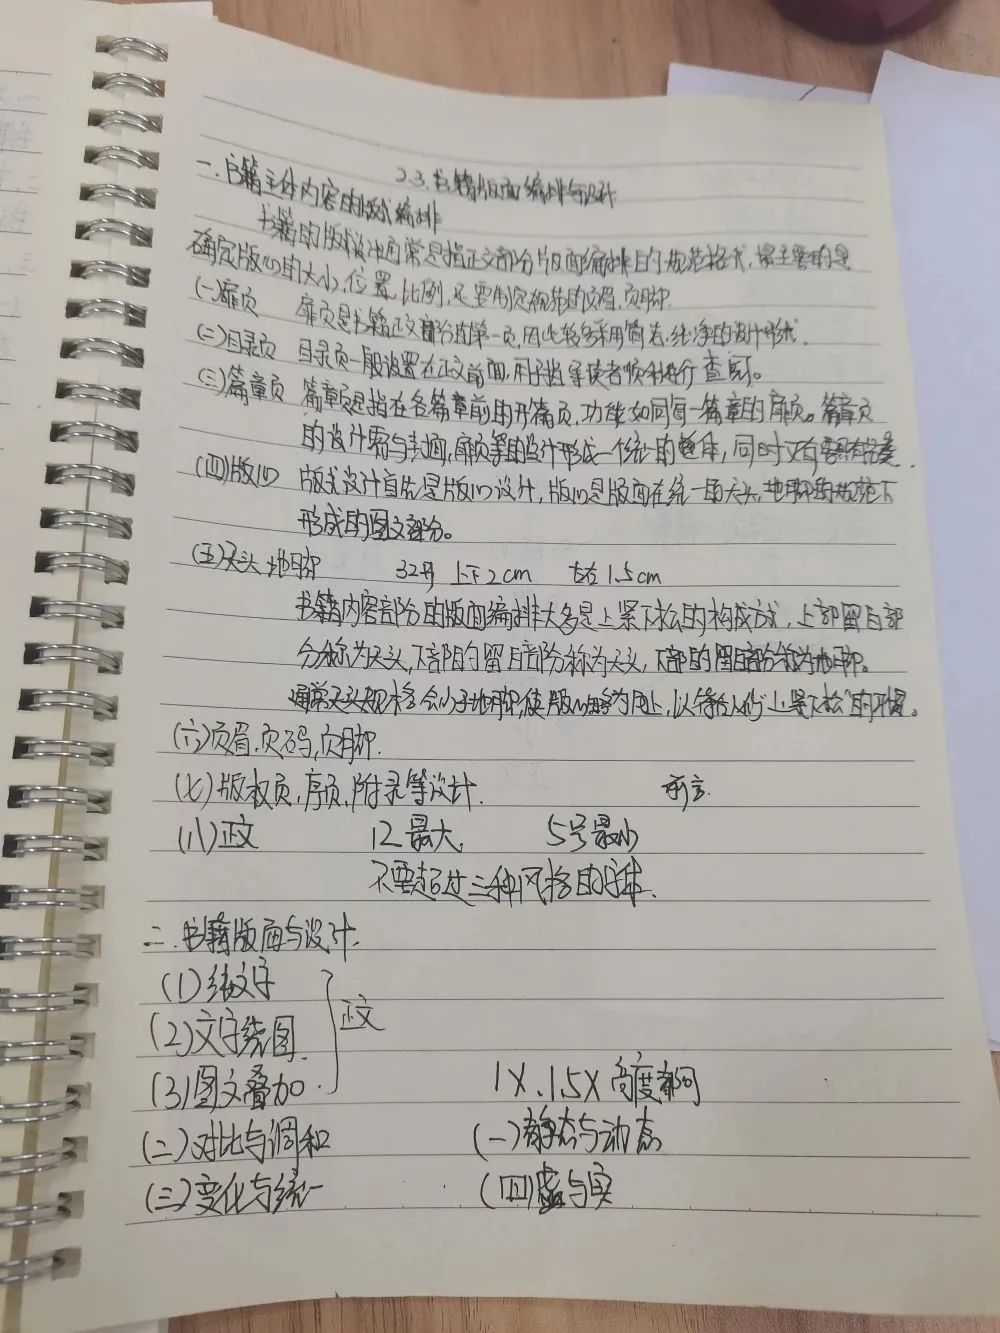 2.3.书籍版面编排与设计
一.书籍主体内容的版式编排
书籍的版式设计通常是指正文部分版面编排的规范格式,最主要的是
确定版心的大小,位置,比例,还要制定规范的页眉.页脚.
(一)扉页 扉页是书籍正文部分的第一页,因此较多采用简洁.纯净的设计形式.
(二)目录页 目录页一般设置在正文前面,用于指导读者顺利进行查阅。
(三)篇章页 篇章页是指在各篇章前的开篇页,功能如同每一篇章的扉页。篇章页
的设计需与封面,扉页等的设计形成一个统一的整体,同时又有
(四)版心 版式设计首先是版心设计,版心是版面在统一的天头,地脚的规范下
形成的图文部分。
(五)天头 地脚 32开 上下2cm 左右1.5cm
书籍内容部分的版面编排大多是上紧下松的构成方式,上部留白部
分称为天头,下部的留白部分称为天头,下部的留白部分称为地脚。
通常天头规格会小于地脚,使版心略为向上,以符合人们“上紧下松”的习惯。
(六)页眉.页码,页脚.
(七)版权页,序页,附录等设计.
(八)正文 12最大, 5号最小
不要超过三种风格的字体.
二.书籍版面与设计.
(1)纯文字
(2)文字绕图. 正文
(3)图文叠加. 1X.1.5X高度
(二)对比与调和 (一)静态与动态
(三)变化与统一 (四)虚与实